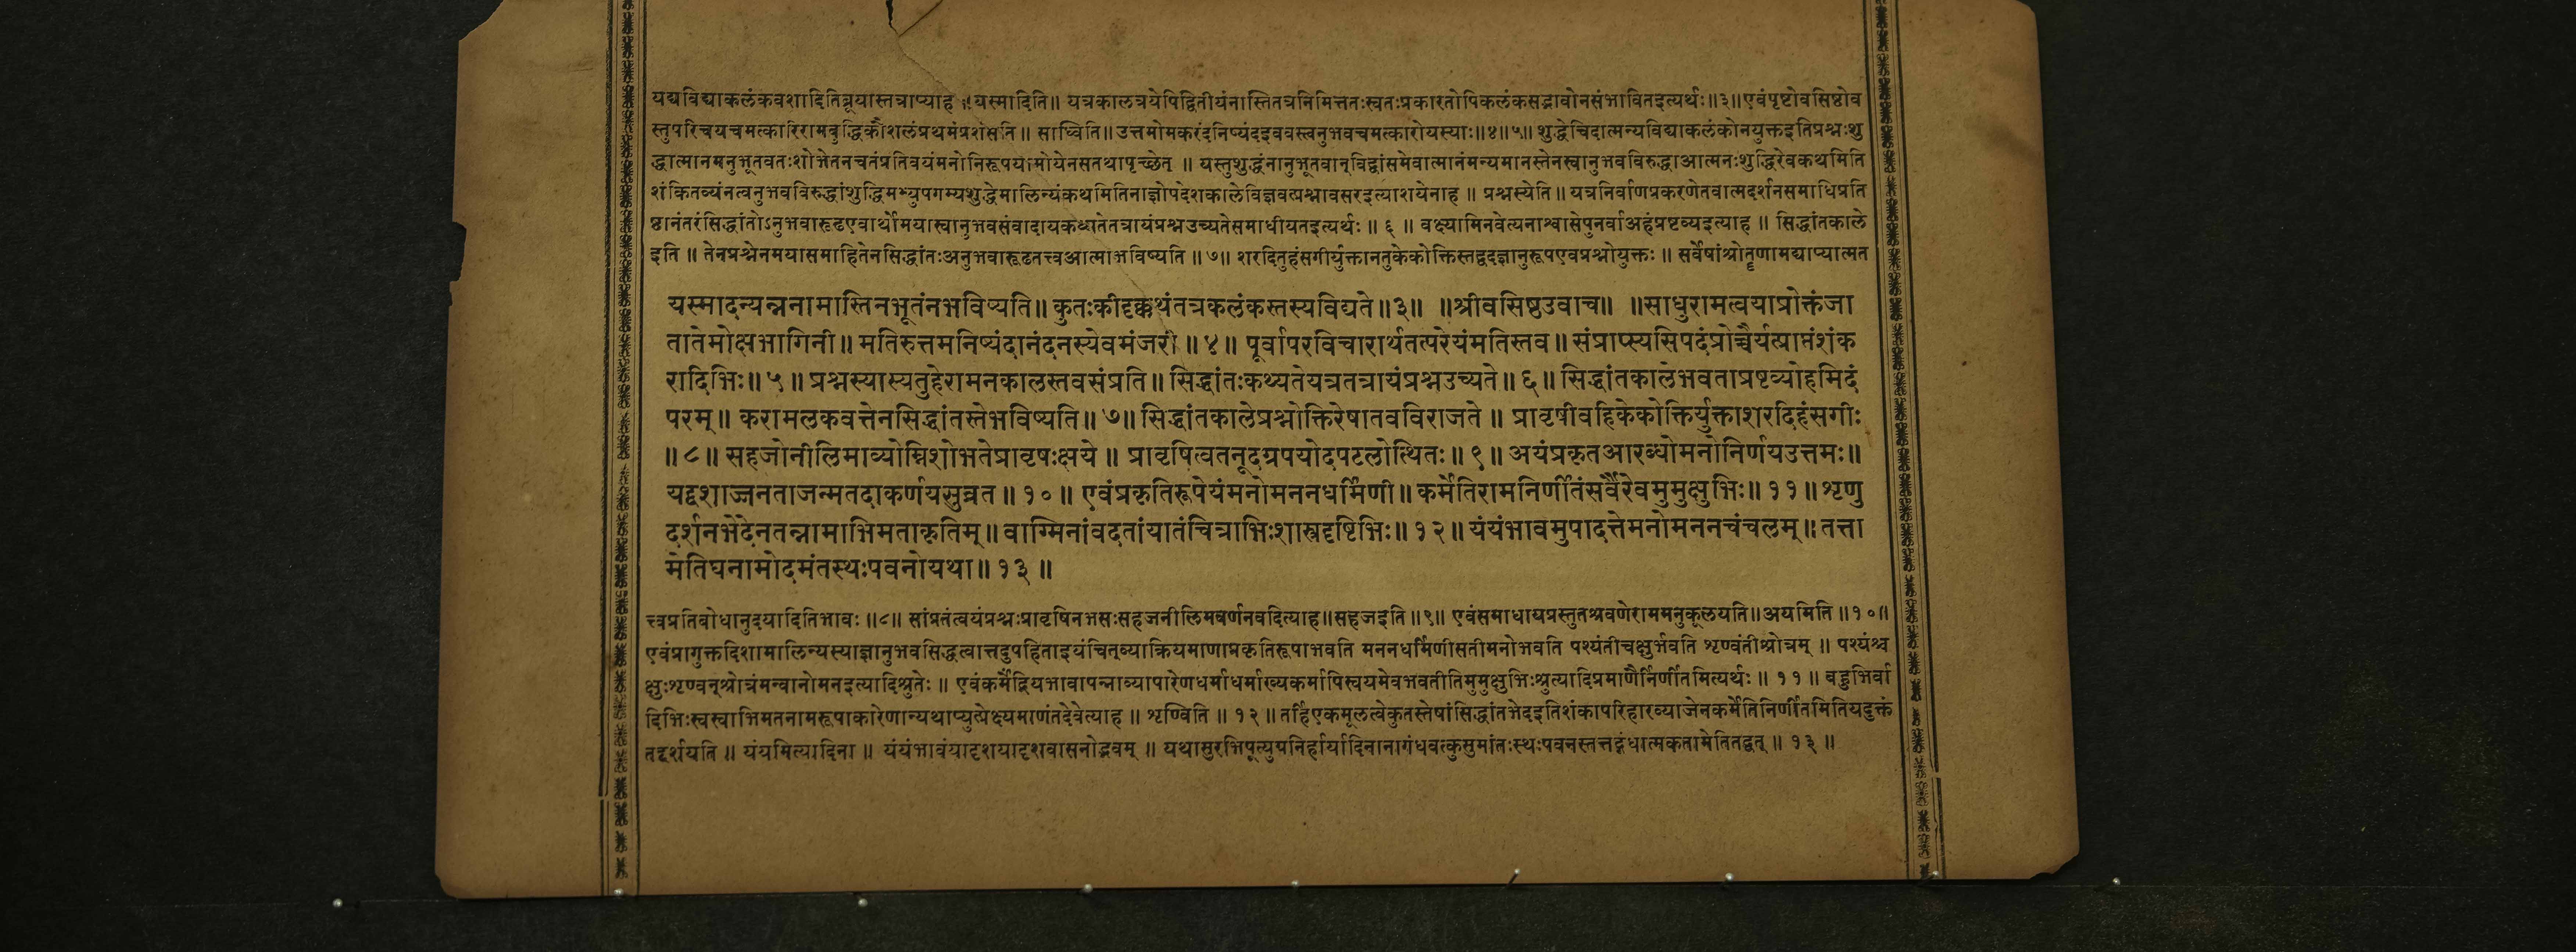 यद्यविद्याकलंकवशादितिब्रूयास्तत्राप्याह ॥यस्मादिति॥ यत्रकालत्रयेपिद्वितीयंनास्तितत्रनिमित्ततःस्वतःप्रकारतोपिकलंकसद्भावोनसंभावितइत्यर्थः॥३॥एवंपृष्टोवसिष्ठोव
स्तुपरिचयचमत्कारिरामबुद्धिकौशलंप्रथमंप्रशंसति॥ साध्विति॥उत्तमोमकरंदनिष्यंदइववस्त्वनुभवचमत्कारोयस्याः॥४॥५॥ शुद्धेचिदात्मन्यविद्याकलंकोनयुक्तइतिप्रश्नःशु
द्धात्मानमनुभूतवतःशोभेतनचतंप्रतिवयंमनोनिरूपयामोयेनसतथापृच्छेत् ॥ यस्तुशुद्धंनानुभूतवान्विद्वांसमेवात्मानंमन्यमानस्तेनस्वानुभवविरुद्धाआत्मनःशुद्धिरेवकथमिति
शंकितव्यंनत्वनुभवविरुद्धांशुद्धिमभ्युपगम्यशुद्धेमालिन्यंकथमितिनाज्ञोपदेशकालेविज्ञवत्प्रश्नावसरइत्याशयेनाह ॥ प्रश्नस्येति॥ यत्रनिर्वाणप्रकरणेतवात्मदर्शनसमाधिप्रति
ष्ठानंतरंसिद्धांतोऽनुभवारूढएवार्थोमयास्वानुभवसंवादायकथ्यतेतत्रायंप्रश्नउच्यतेसमाधीयतइत्यर्थः॥ ६ ॥ वक्ष्यामिनवेत्यनाश्वासेपुनर्वाअहंप्रष्टव्यइत्याह ॥ सिद्धांतकाले
इति ॥ तेनप्रश्नेनमयासमाहितेनसिद्धांतःअनुभवारूढतत्त्वआत्माभविष्यति ॥७॥ शरदितुहंसगीर्युक्तानतुकेकोक्तिस्तद्वदज्ञानुरूपएवप्रश्नोयुक्तः ॥ सर्वेषांश्रोतॄणामद्याप्यात्मत
यस्मादन्यन्ननामास्तिनभूतंनभविष्यति॥ कुतःकीदृक्कथंतत्रकलंकस्तस्यविद्यते॥३॥ ॥श्रीवसिष्ठउवाच॥ ॥साधुरामत्वयाप्रोक्तंजा
तातेमोक्षभागिनी॥ मतिरुत्तमनिष्यंदानंदनस्येवमंजरी॥४॥ पूर्वापरविचारार्थतत्परेयंमतिस्तव॥संप्राप्स्यसिपदंप्रोच्चैर्यत्प्राप्तंशंक
रादिभिः॥५॥प्रश्नस्यास्यतुहेरामनकालस्तवसंप्रति॥सिद्धांतःकथ्यतेयत्रतत्रायंप्रश्नउच्यते॥६॥सिद्धांतकालेभवताप्रष्टव्योहमिदं
परम्॥ करामलकवत्तेनसिद्धांतस्तेभविष्यति॥७॥सिद्धांतकालेप्रश्नोक्तिरेषातवविराजते॥ प्रावृषीवहिकेकोक्तिर्युक्ताशरदिहंसगीः
॥८॥ सहजोनीलिमाव्योम्निशोभतेप्रावृषःक्षये॥ प्रावृषित्वतनूदग्रपयोदपटलोत्थितः॥९॥अयंप्रकृतआरब्धोमनोनिर्णयउत्तमः॥
यद्वशाज्जनताजन्मतदाकर्णयसुव्रत॥१०॥ एवंप्रकृतिरूपेयंमनोमननधर्मिणी॥कर्मेतिरामनिर्णीतंसर्वैरेवमुमुक्षुभिः॥११॥शृणु
दर्शनभेदेनतन्नामाभिमताकृतिम्॥वाग्मिनांवदतांयातंचित्राभिःशास्त्रदृष्टिभिः॥१२॥यंयंभावमुपादत्तेमनोमननचंचलम्॥तत्ता
मेतिघनामोदमंतस्थःपवनोयथा॥१३॥
त्त्वप्रतिबोधानुदयादितिभावः॥८॥ सांप्रतंत्वयंप्रश्नःप्रावृषिनभसःसहजनीलिमवर्णनवदित्याह॥सहजइति॥९॥ एवंसमाधायप्रस्तुतश्रवणेराममनुकूलयति॥अयमिति॥१०॥
एवंप्रागुक्तदिशामालिन्यस्याज्ञानुभवसिद्धत्वात्तदुपहिताइयंचित्व्याक्रियमाणाप्रकृतिरूपाभवति मननधर्मिणीसतीमनोभवति पश्यंतीचक्षुर्भवति शृण्वंतीश्रोत्रम् ॥ पश्यंश्च
क्षुःशृण्वन्श्रोत्रंमन्वानोमनइत्यादिश्रुतेः ॥ एवंकर्मेंद्रियभावापन्नाव्यापारेणधर्माधर्माख्यकर्मापिस्वयमेवभवतीतिमुमुक्षुभिःश्रुत्यादिप्रमाणैर्निर्णीतमित्यर्थः॥ ११॥ बहुभिर्वा
दिभिःस्वस्वाभिमतनामरूपाकारेणान्यथाप्युत्प्रेक्ष्यमाणंतदेवेत्याह ॥ शृण्विति ॥ १२॥ तर्हिएकमूलत्वेकुतस्तेषांसिद्धांतभेदइतिशंकापरिहारव्याजेनकर्मेतिनिर्णीतमितियदुक्तं
तद्दर्शयति ॥ यंयमित्यादिना ॥ यंयंभावंयादृशयादृशवासनोद्भवम् ॥ यथासुरभिपूत्युग्रनिर्हार्यादिनानागंधवत्कुसुमांतःस्थःपवनस्तत्तद्गंधात्मकतामेतितद्वत् ॥ १३ ॥